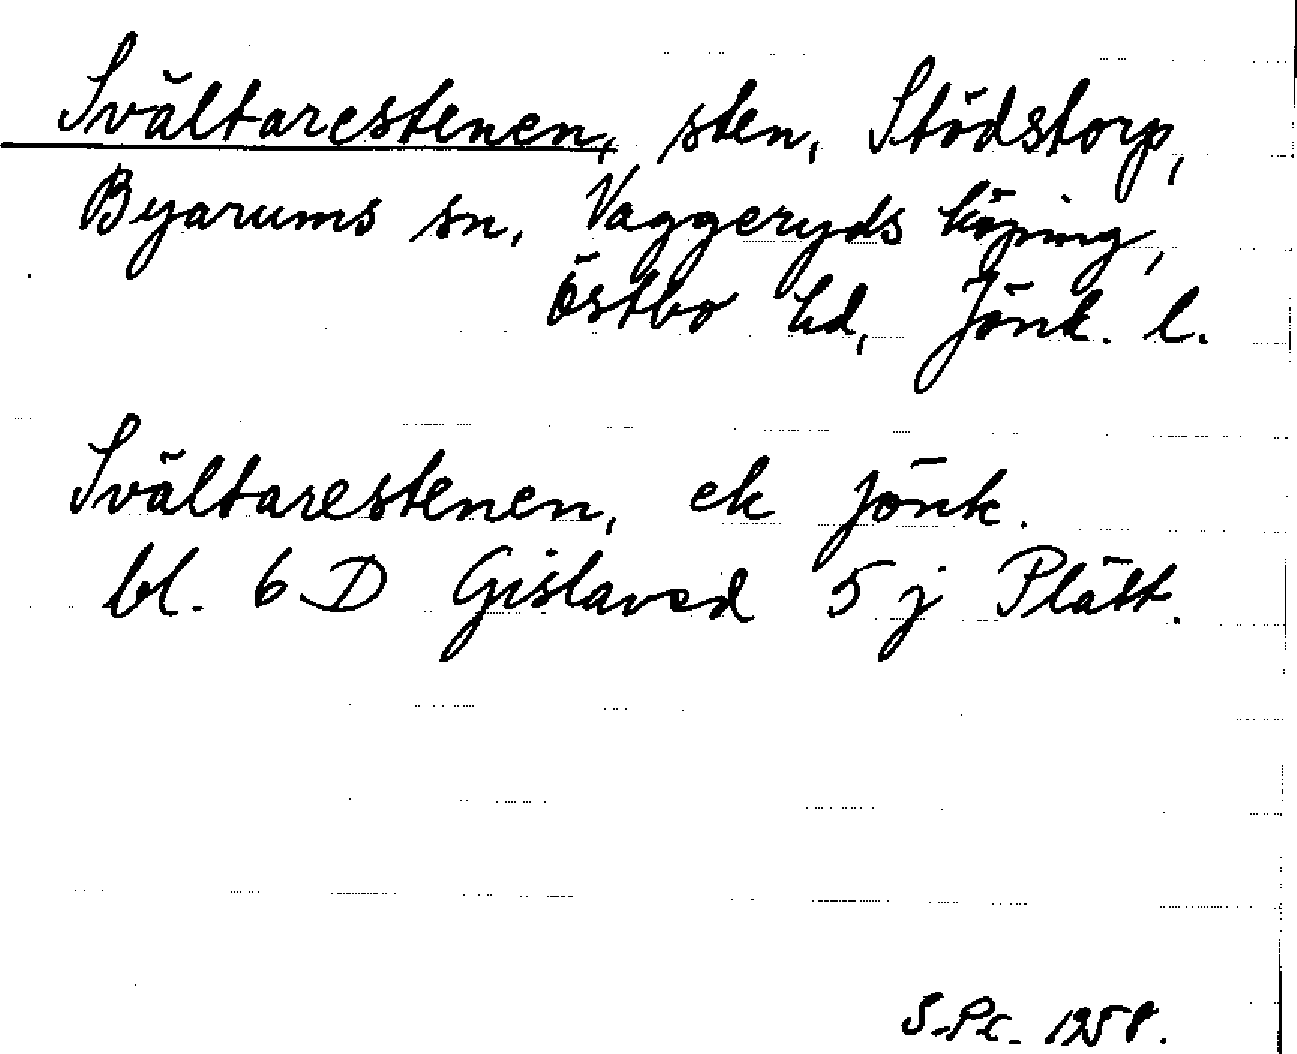 Svältarestenen, sten, Stödstorp,
Byarums sn, Vaggeryds köping,
Östbo hd, Jönk. l.
Svältarestenen, ek Jönk.
bl. 6 D Gislaved 5 j Plätt.
1958.